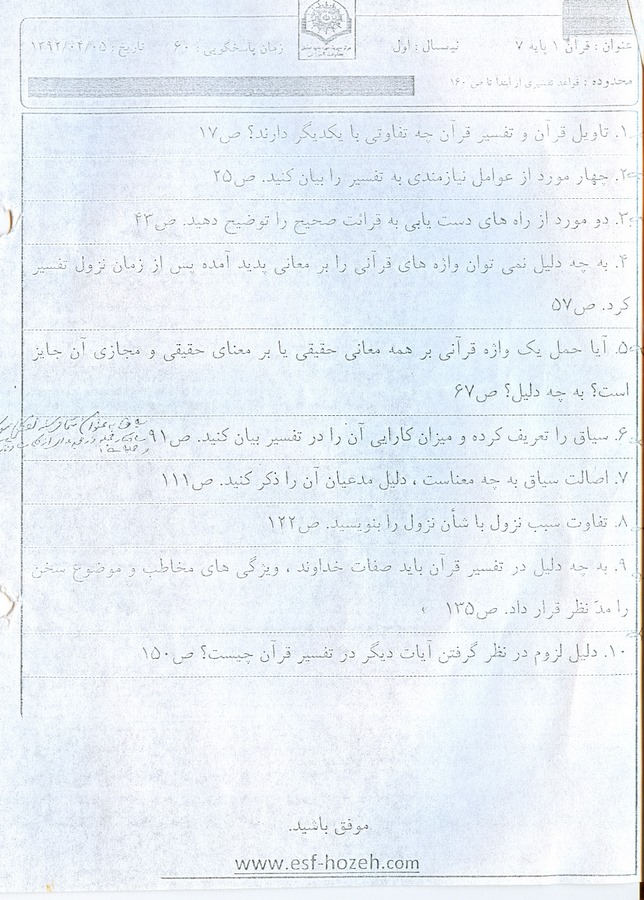 عنوان : قرآن ۱ پایه ۷ نیمسال : اول زمان پاسخگویی : ۶۰ تاریخ : ۱۳۹۲/۰۴/۰۵
محدوده : قواعد تفسیری از ابتدا تا ص ۱۶۰
۱. تاویل قرآن و تفسیر قرآن چه تفاوتی با یکدیگر دارند؟ ص۱۷
۲. چهار مورد از عوامل نیازمندی به تفسیر را بیان کنید. ص۲۵
۳. دو مورد از راه های دست یابی به قرائت صحیح را توضیح دهید. ص۴۳
۴. به چه دلیل نمی توان واژه های قرآنی را بر معانی پدید آمده پس از زمان نزول تفسیر
کرد. ص۵۷
۵. آیا حمل یک واژه قرآنی بر همه معانی حقیقی یا بر معنای حقیقی و مجازی آن جایز
است؟ به چه دلیل؟ ص۶۷
۶. سیاق را تعریف کرده و میزان کارایی آن را در تفسیر بیان کنید. ص۹۱
۷. اصالت سیاق به چه معناست ، دلیل مدعیان آن را ذکر کنید. ص۱۱۱
۸. تفاوت سبب نزول با شأن نزول را بنویسید. ص۱۲۲
۹. به چه دلیل در تفسیر قرآن باید صفات خداوند ، ویژگی های مخاطب و موضوع سخن
را مدّ نظر قرار داد. ص۱۳۵
۱۰. دلیل لزوم در نظر گرفتن آیات دیگر در تفسیر قرآن چیست؟ ص۱۵۰
موفق باشید.
www.esf-hozeh.com